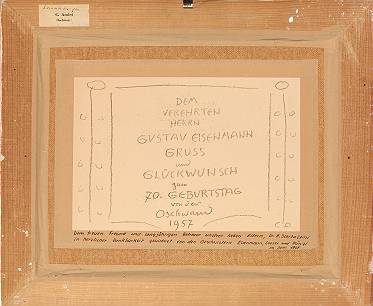 G. André
DEM
VEREHRTEN
HERRN
GUSTAV EISENMANN
GRUSS
und
GLÜCKWUNSCH
zum
70. GEBURTSTAG
von der
Oschwand
1957
Dem treuen Freund und langjährigen Betreuer unserer lieben Eltern, Dr. R.
in herzlicher Dankbarkeit gewidmet von den Geschwistern Eisenmann,
im Juni